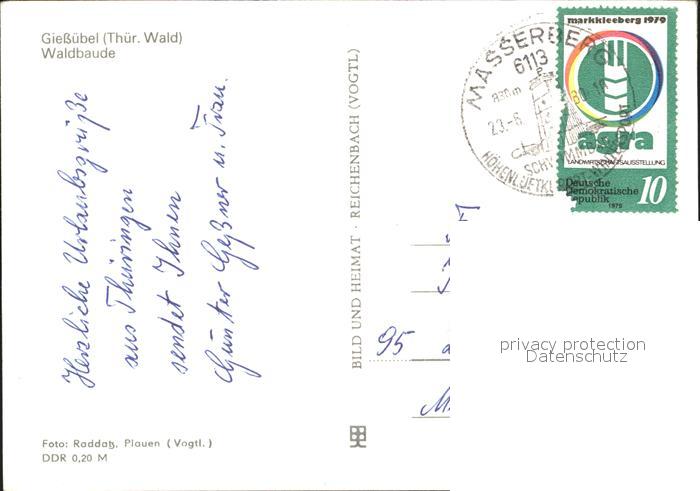 Gießübel (Thür. Wald)
Waldbaude
Herzliche Urlaubsgrüße
aus Thüringen
sendet Ihnen
Günter Geßner u. Frau.
Foto: Raddatz, Plauen (Vogtl.)
DDR 0,20 M
BILD UND HEIMAT · REICHENBACH (VOGTL)
MASSERBERG
6113
830 m
23.-6.
HÖHENLUFTKURORT
markkleeberg 1979
agra
LANDWIRTSCHAFTSAUSSTELLUNG
Deutsche
Demokratische
Republik 10
1979
95
privacy protection
Datenschutz